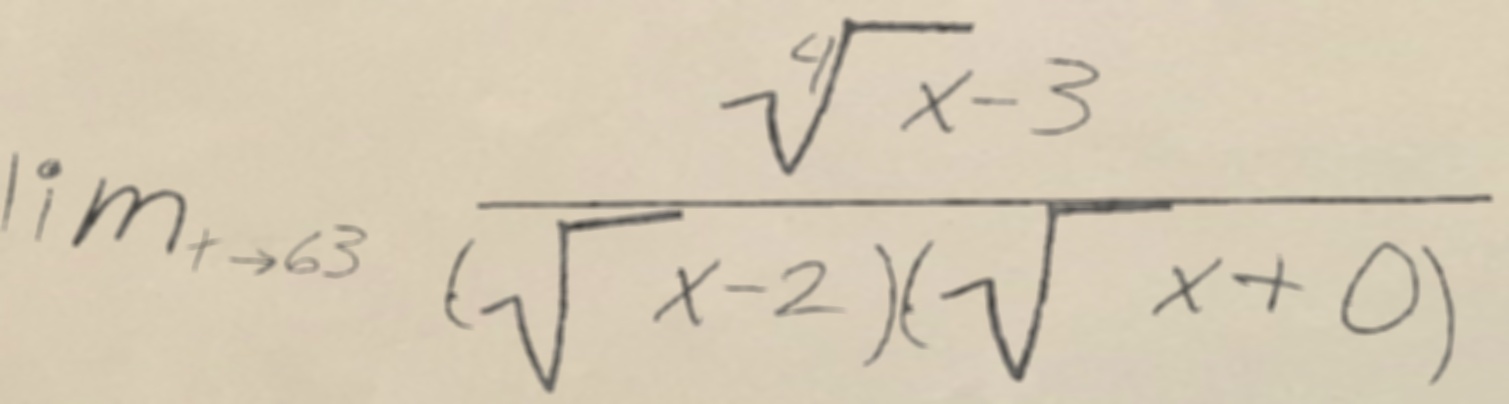 lim_{t→63} \frac{\sqrt[4]{x-3}}{(\sqrt{x-2})(\sqrt{x+0})}